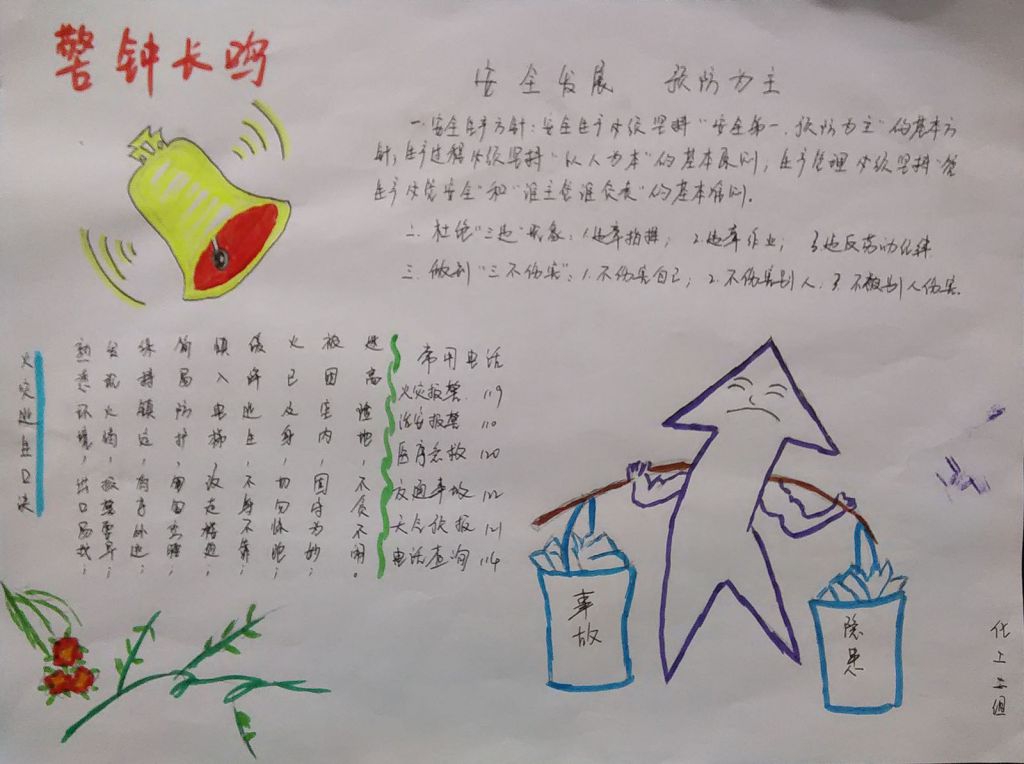 警钟长鸣
安全发展 预防为主
一.安全生产方针:安全生产必须坚持“安全第一,预防为主”的基本方
针,生产过程必须坚持“以人为本”的基本原则,生产管理必须坚持“管
生产必管安全”和“谁主管谁负责”的基本准则.
二.杜绝“三违”现象:1.违章指挥; 2.违章作业; 3.违反劳动纪律
三.做到“三不伤害”:1.不伤害自己;2.不伤害别人.3.不被别人伤害.
火灾逃生口诀
熟悉环境,出口易找;
发现火情,报警要早;
保持镇定,有序外逃;
简易防护,匍匐
慎入电梯,改走楼道;
缓降逃生,不等不靠;
火已及身,切勿惊跑;
被困室内,固守为妙;
远离险地,不贪不闹。
常用电话
火灾报警 119
治安报警 110
医疗急救 120
交通事故 122
天气预报 121
电话查询 114
事故
隐患
化上二组